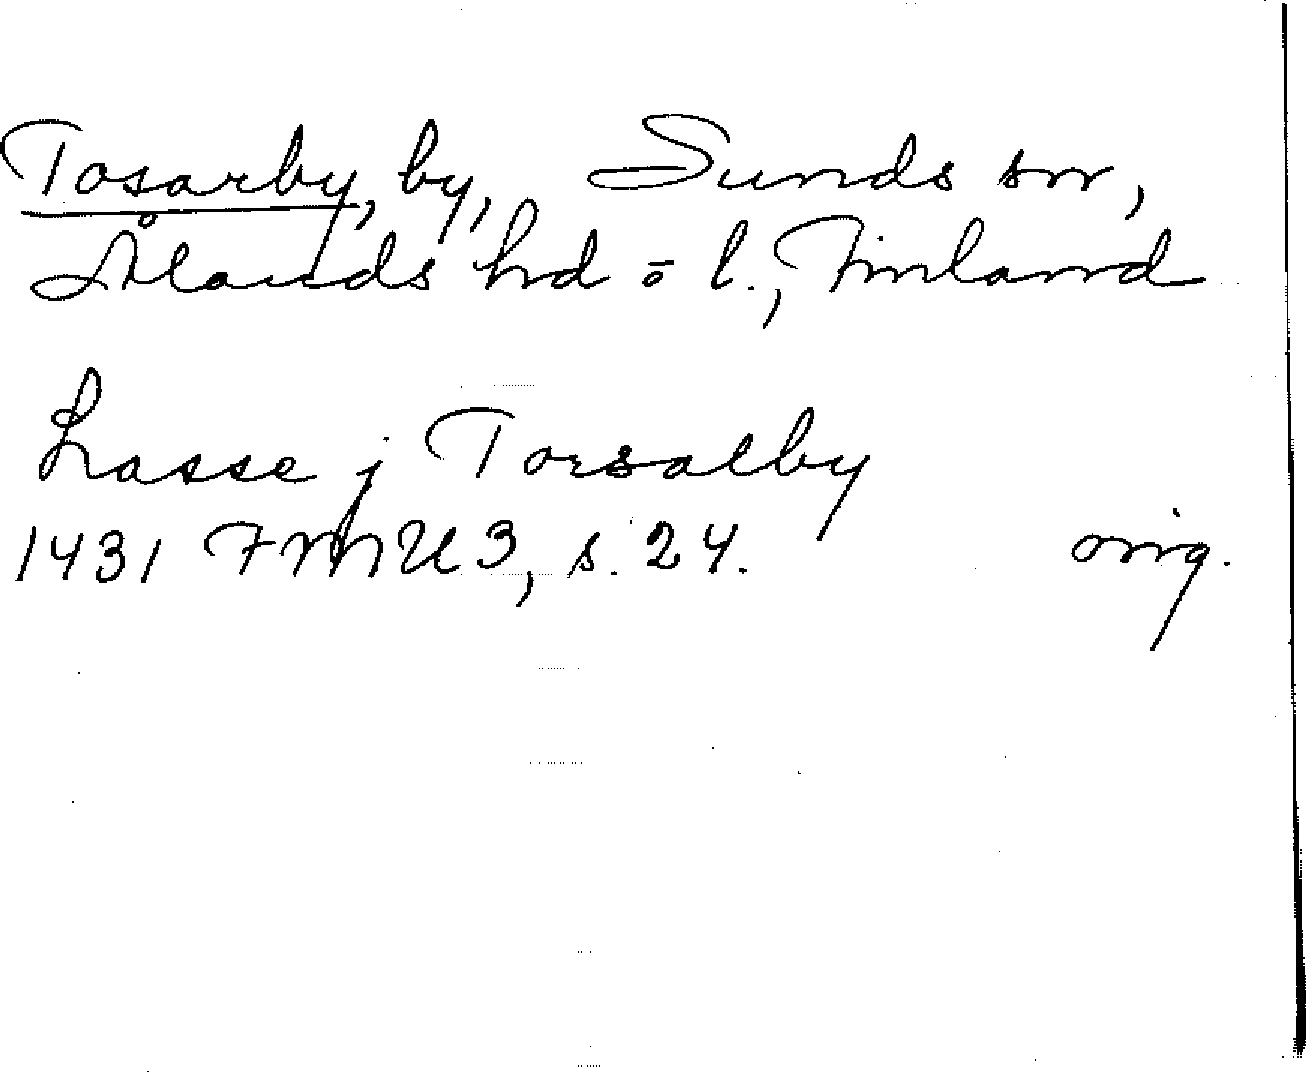 Tosarby, by, Sunds sn,
Ålands hd ō l., Finland
Lasse j Torsalby
1431 FMU 3, s. 24. orig.